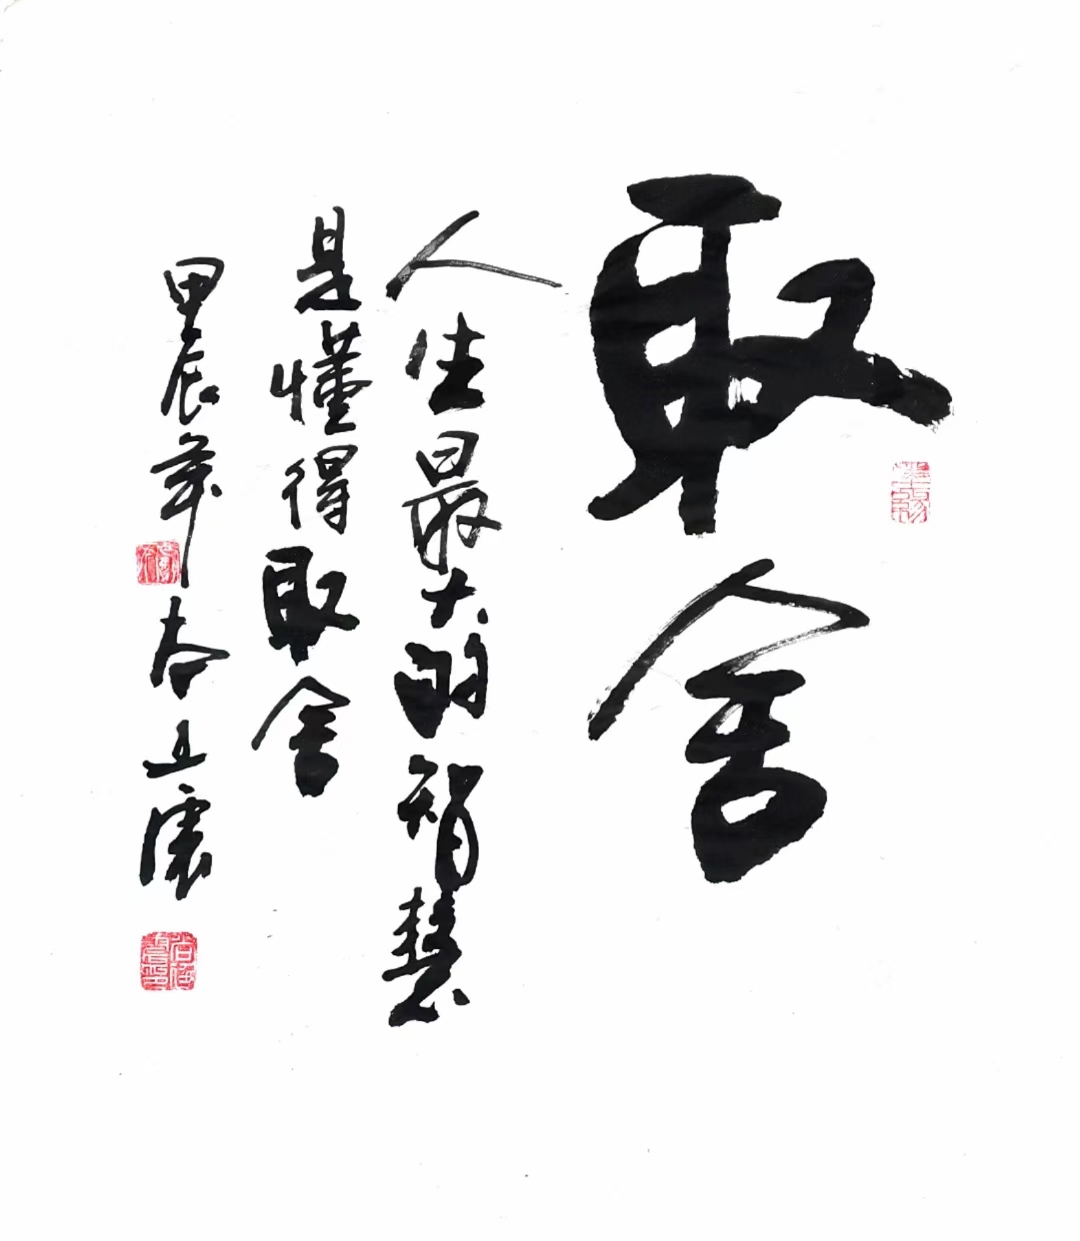 取舍
人生最大的智慧
是懂得取舍
甲辰年